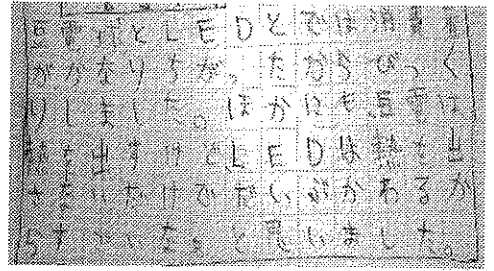 豆電球とLEDとでは消費電
がかなりちがったからびっく
りしました。ほかにも豆電は
熱を出すけどLEDは熱を出
さないだけでだいぶかわるか
らすごいなと思いました。